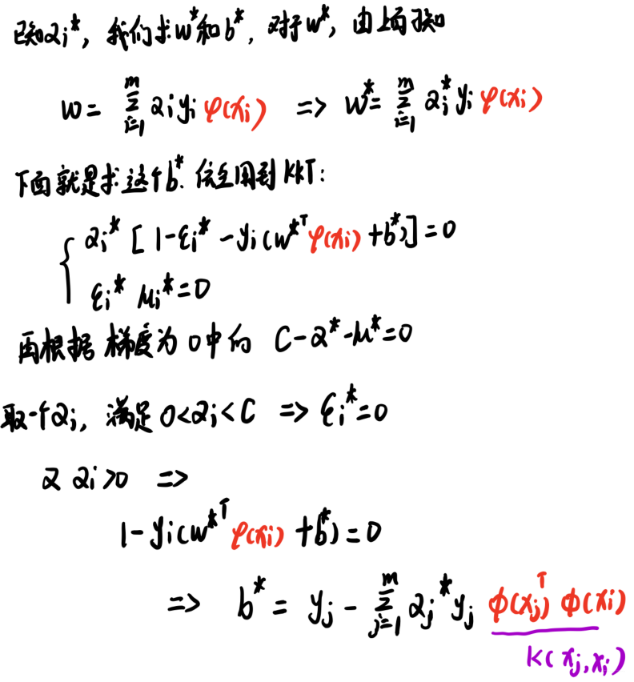 已知αi*, 我们求w*和b*, 对于w*, 由上面可知
w = Σ_{i=1}^{m} αi yi φ(xi) => w* = Σ_{i=1}^{m} αi* yi φ(xi)
下面就是求这个b*. 应用到KKT:
αi* [1-εi* - yi(w*ᵀφ(xi)+b*)] = 0
εi* μi* = 0
再根据梯度为0中的 C-α*-μ*=0
取一个αi, 满足 0<αi<C => εi*=0
又 αi>0 =>
1-yi(w*ᵀφ(xi)+b*)=0
=> b* = yj - Σ_{j=1}^{m} αj* yj ϕ(xj)ᵀ ϕ(xi)
K(xj,xi)